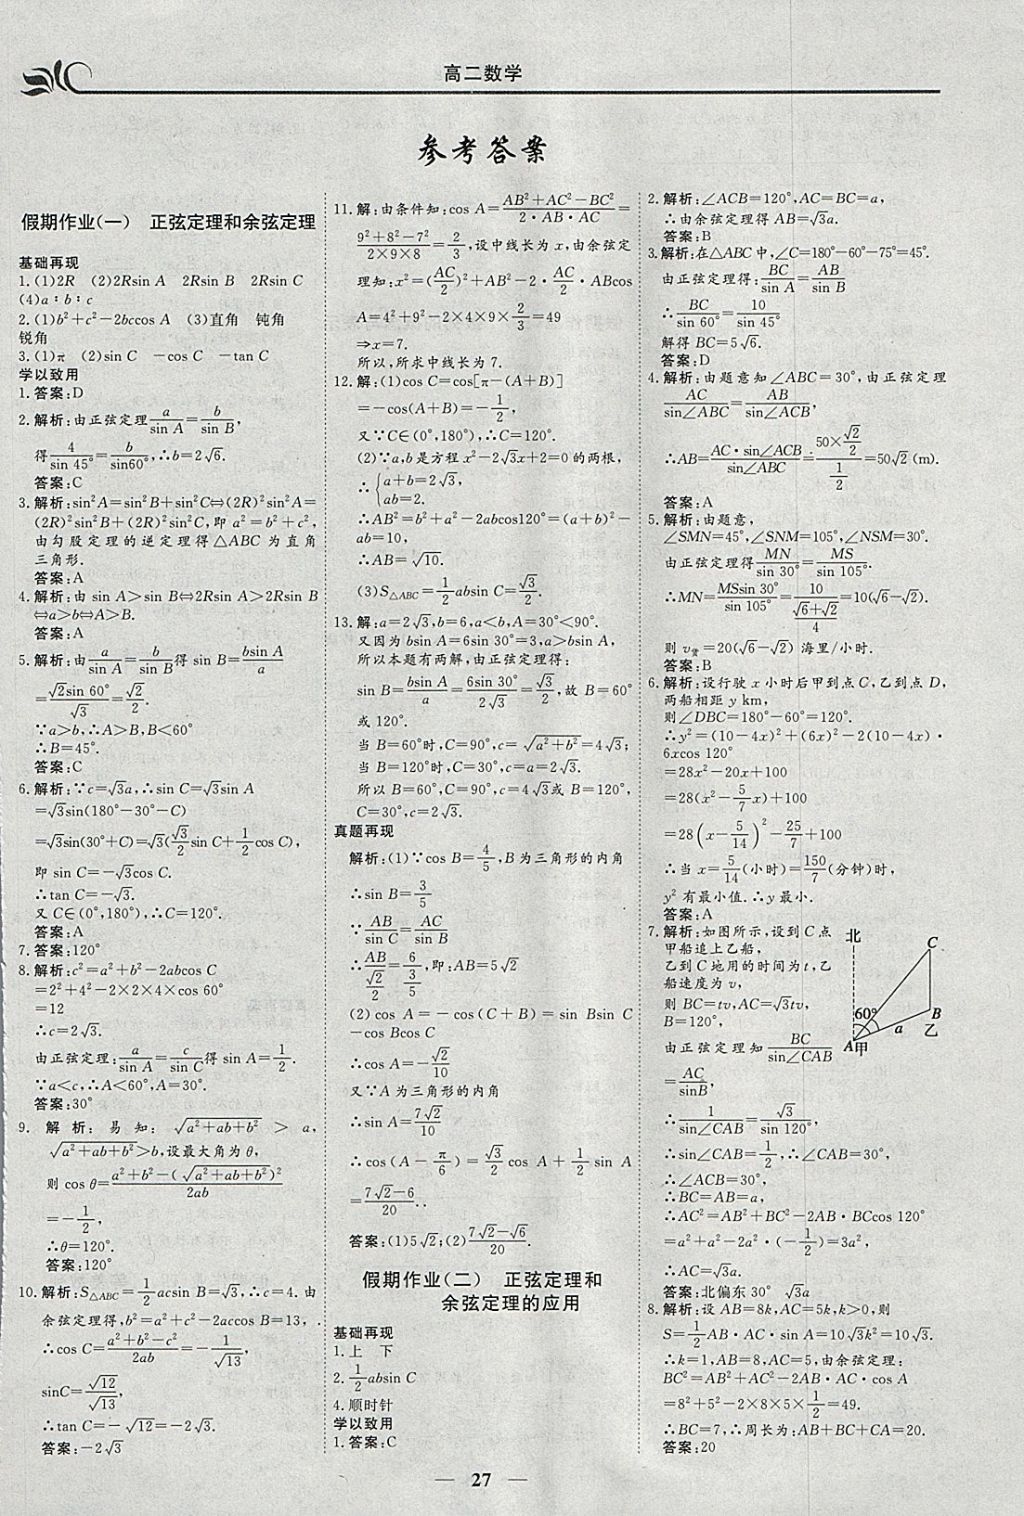 高二数学
参考答案
假期作业(一) 正弦定理和余弦定理
基础再现
1.(1)2R (2)2Rsin A 2Rsin B 2Rsin C
(4)a∶b∶c
2.(1)b²+c²-2bccos A (3)直角 钝角
锐角
3.(1)π (2)sin C -cos C -tan C
学以致用
1.答案:D
2.解析:由正弦定理a/sin A=b/sin B,
得4/sin 45°=b/sin60°,∴b=2√6.
答案:C
3.解析:sin²A=sin²B+sin²C⇔(2R)²sin²A=
(2R)²sin²B+(2R)²sin²C,即a²=b²+c²,
由勾股定理的逆定理得△ABC为直角
三角形.
答案:A
4.解析:由sin A>sin B⇔2Rsin A>2Rsin B
⇔a>b⇔A>B.
答案:A
5.解析:由a/sin A=b/sin B得sin B=bsin A/a
=√2sin 60°/√3=√2/2.
∵a>b,∴A>B,B<60°
∴B=45°.
答案:C
6.解析:∵c=√3a,∴sin C=√3sin A
=√3sin(180°-30°-C)
=√3sin(30°+C)=√3(√3/2sin C+1/2cos C),
即sin C=-√3cos C.
∴tan C=-√3.
又C∈(0°,180°),∴C=120°.
答案:A
7.答案:120°
8.解析:c²=a²+b²-2abcos C
=2²+4²-2×2×4×cos 60°
=12
∴c=2√3.
由正弦定理:a/sin A=c/sin C得sin A=1/2.
∵a<c,∴A<60°,A=30°.
答案:30°
9.解析:易知:√(a²+ab+b²)>a,
√(a²+ab+b²)>b,设最大角为θ,
则cos θ=(a²+b²-(√(a²+ab+b²))²)/2ab
=-1/2,
∴θ=120°.
答案:120°
10.解析:S△ABC=1/2acsin B=√3,∴c=4.由
余弦定理得,b²=a²+c²-2accos B=13,
∴cos C=(a²+b²-c²)/2ab=-1/√13,
sinC=√12/√13,
∴tan C=-√12=-2√3.
答案:-2√3
11.解:由条件知:cos A=(AB²+AC²-BC²)/(2·AB·AC)=
(9²+8²-7²)/(2×9×8)=2/3,设中线长为x,由余弦定
理知:x²=(AC/2)²+AB²-2·AC/2·ABcos
A=4²+9²-2×4×9×2/3=49
⇒x=7.
所以,所求中线长为7.
12.解:(1)cos C=cos[π-(A+B)]
=-cos(A+B)=-1/2,
又∵C∈(0°,180°),∴C=120°.
(2)∵a,b是方程x²-2√3x+2=0的两根,
∴{a+b=2√3,
ab=2.
∴AB²=b²+a²-2abcos120°=(a+b)²-
ab=10,
∴AB=√10.
(3)S△ABC=1/2absin C=√3/2.
13.解:a=2√3,b=6,a<b,A=30°<90°.
又因为bsin A=6sin 30°=3,a>bsin A,
所以本题有两解,由正弦定理得:
sin B=bsin A/a=6sin 30°/2√3=√3/2,故B=60°
或120°.
当B=60°时,C=90°,c=√(a²+b²)=4√3;
当B=120°时,C=30°,c=a=2√3.
所以B=60°,C=90°,c=4√3或B=120°,
C=30°,c=2√3.
真题再现
解析:(1)∵cos B=4/5,B为三角形的内角
∴sin B=3/5
∵AB/sin C=AC/sin B
∴AB/(√2/2)=6/(3/5),即:AB=5√2
(2)cos A=-cos(C+B)=sin Bsin C
-cos Bcos C
∴cos A=-√2/10
又∵A为三角形的内角
∴sin A=7√2/10
∴cos(A-π/6)=√3/2cos A+1/2sin A
=(7√2-√6)/20.
答案:(1)5√2;(2)(7√2-√6)/20.
假期作业(二) 正弦定理和
余弦定理的应用
基础再现
1.上 下
2.1/2absin C
4.顺时针
学以致用
1.答案:C
2.解析:∠ACB=120°,AC=BC=a,
∴由余弦定理得AB=√3a.
答案:B
3.解析:在△ABC中,∠C=180°-60°-75°=45°.
由正弦定理得:BC/sin A=AB/sin B
∴BC/sin 60°=10/sin 45°
解得BC=5√6.
答案:D
4.解析:由题意知∠ABC=30°,由正弦定理
AC/sin∠ABC=AB/sin∠ACB,
∴AB=AC·sin∠ACB/sin∠ABC=(50×√2/2)/(1/2)=50√2(m).
答案:A
5.解析:由题意,
∠SMN=45°,∠SNM=105°,∠NSM=30°.
由正弦定理得MN/sin 30°=MS/sin 105°.
∴MN=MSsin 30°/sin 105°=10/((√6+√2)/4)=10(√6-√2).
则v货=20(√6-√2)海里/小时.
答案:B
6.解析:设行驶x小时后甲到点C,乙到点D,
两船相距y km,
则∠DBC=180°-60°=120°.
∴y²=(10-4x)²+(6x)²-2(10-4x)·
6xcos 120°
=28x²-20x+100
=28(x²-5/7x)+100
=28(x-5/14)²-25/7+100
∴当x=5/14(小时)=150/7(分钟)时,
y²有最小值.∴y最小.
答案:A
7.解析:如图所示,设到C点
甲船追上乙船,
乙到C地用的时间为t,乙
船速度为v,
则BC=tv,AC=√3tv,
B=120°,
由正弦定理知BC/sin∠CAB
=AC/sinB,
∴1/sin∠CAB=√3/sin 120°,
∴sin∠CAB=1/2,∴∠CAB=30°,
∴∠ACB=30°,
∴BC=AB=a,
∴AC²=AB²+BC²-2AB·BCcos 120°
=a²+a²-2a²·(-1/2)=3a²,
∴AC=√3a.
答案:北偏东30° √3a
北
C
60°
B
a
乙
A甲
8.解析:设AB=8k,AC=5k,k>0,则
S=1/2AB·AC·sin A=10√3k²=10√3.
∴k=1,AB=8,AC=5,由余弦定理:
BC²=AB²+AC²-2AB·AC·cos A
=8²+5²-2×8×5×1/2=49.
∴BC=7,∴周长为:AB+BC+CA=20.
答案:20
— 27 —